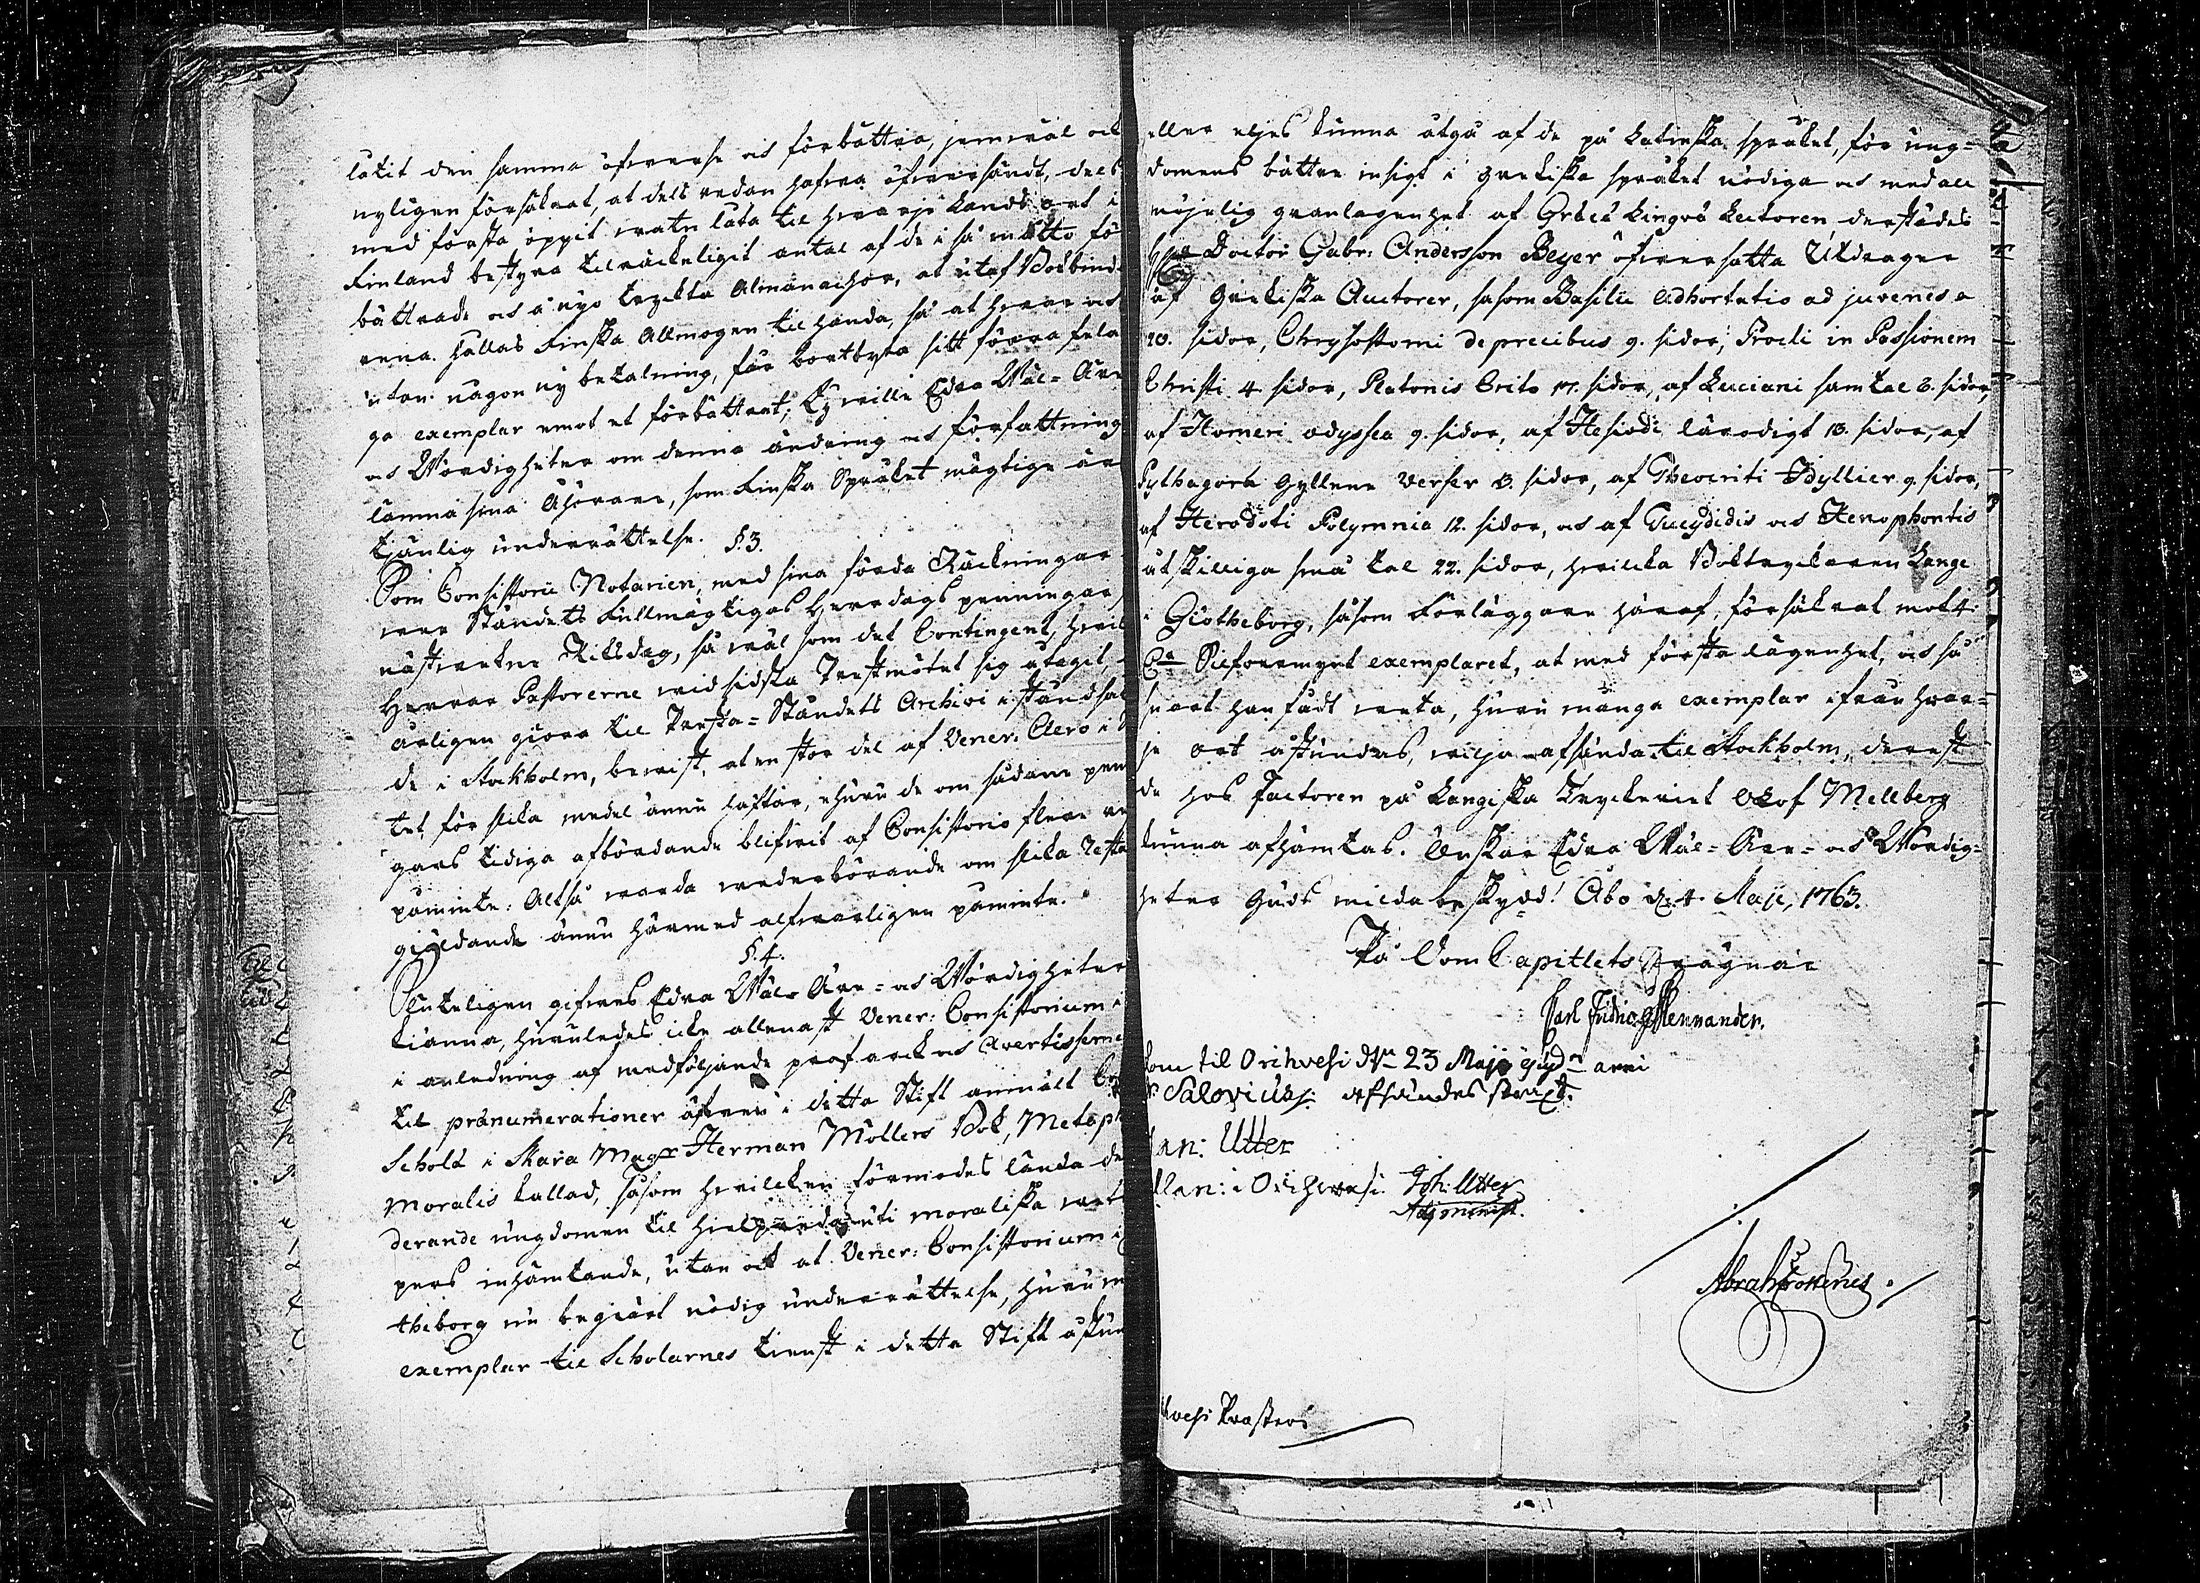 låtit den samma öfwerse och förbättra, jemwäl ock
nyligen försäkrat, at dels redan hafwa öfwersändt, dels
med första öppit watn låta til hwarje Landsort i
Finland bestyra tilräckeligit antal af de i så måtto för
bättrade och å nyo tryckta Almanachor, at utaf Bokbind
rena hållas Finska Allmogen til handa, så at hwar och
utan någon ny betalning, får bortbyta sitt förra fela
ga exemplar emot et förbättrat; Ty wille Edra Wäl-Äre
och Wördigheter om denna ändring och författning
lämna sina Åhörare, som Finska Språket mägtige äro
tjänlig underrättelse.
§. 3.
Som Consistorii Notarien, med sina förda Räckningar
wer Ståndets Fullmägtigas Herredags penningar,
nästwekne Riksdag, så wäl som det Contingent, hwil
Herrar Pastorerne wid sidsta Prestmötet sig åtagit
årligen giöra til Presta-Ståndets Archivi iståndsät
de i Stockholm, bewist, at en stor del af Vener. Clero i
tet för slika medel ännu häftar, ehuru de om sådane pen
gars tidiga afbördande blifwit af Consistorio flere re
påminte: Altså warda wederbörande om slika resta
giäldande ännu härmed alfwarligen påminte.
§. 4.
Sluteligen gifwes Edra Wäl-Äre- och Wördigheter
kiänna, huruledes icke allenast Vener. Consistorium
i anledning af medföljande prof-ark och Avertisseme
til prånumerationer äfwen i detta Stift anmält
Schola i Skara Magr Herman Möllers Bok, Metaph
Moralis kallad, såsom hwilcken förmodes lända de
derande ungdomen til hielpreda uti moraliska wet
pers inhämtande, utan ock at Vener. Consistorium i
theborg nu begiärt nödig underrättelse, huru m
exemplar til Scholarnes tienst i detta Stift åstun
eller eljes kunna åtgå af de på Latinska språket, för ung-
domens bättre insigt i Grekiska språket nödiga och med all
möjelig granlagenhet af Græcæ Lingvæ Lectoren derstädes
Doctor Gabr: Andersson Beyer öfwersatta Utdragne
af Grekiska Auctorer, såsom Basilii adhortatio ad juvenes a
20. sidor, Chrysostomi de precibus 9. sidor, Procli in Passionem
Christi 4. sidor, Platonis Crito 17. sidor, af Luciani samtal 8. sidor,
af Homeri odyssea 9. sidor, af Hesiodi lärodigt 18. sidor, af
Pythagoræ Gyllene Verser 3. sidor, af Theocriti Idyllier 9. sidor,
af Herodoti Polymnia 12. sidor, och af Tucydidis och Xenophontis
åtskilliga små tal 22. sidor, hwilcka Boktryckaren Lange
i Giötheborg, såsom Förläggare häraf, försäkrat mot 4.
Silfwermynt exemplaret, at med första lägenhet, och så
snart han fådt weta, huru många exemplar ifrån hwar-
je ort åstundas, wilja afsända til Stockholm, derest
de hos Factoren på Langiska Tryckeriet Olof Mellberg
kunna afhämtas. Önskar Edra Wäl-Äre- och Wördig-
heter Guds milda beskydd! Åbo d. 4. Maji, 1763.
På Dom Capitlets wägnar
Carl Fridric Mennander.
kom til Orihvesi den 23 Maji ejusdm anni
Salovius. afsändes straxt.
an: Utter
llan: i Orihwesi Joh: Utter
Adj minist.
Abrah
vesi Prästers